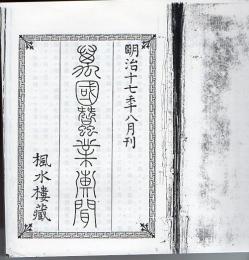 明治十七年八月刊
萬國蠶業東聞
楓水樓藏